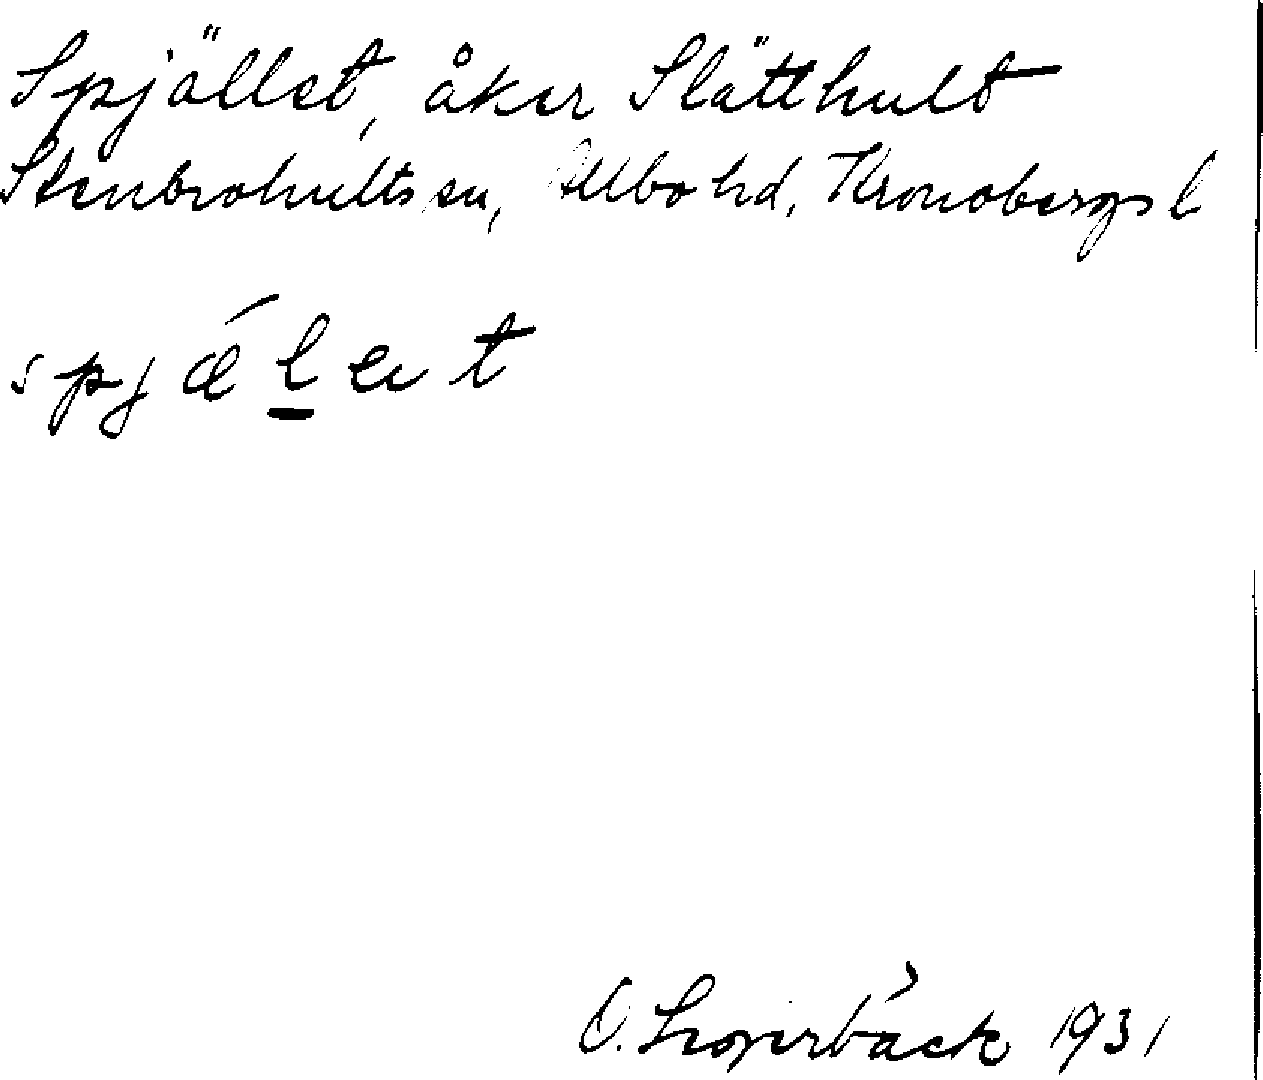 Spjället, åker Slätthult
Stenbrohults sn, Allbo hd, Kronobergs l
spjælet
O. 1931